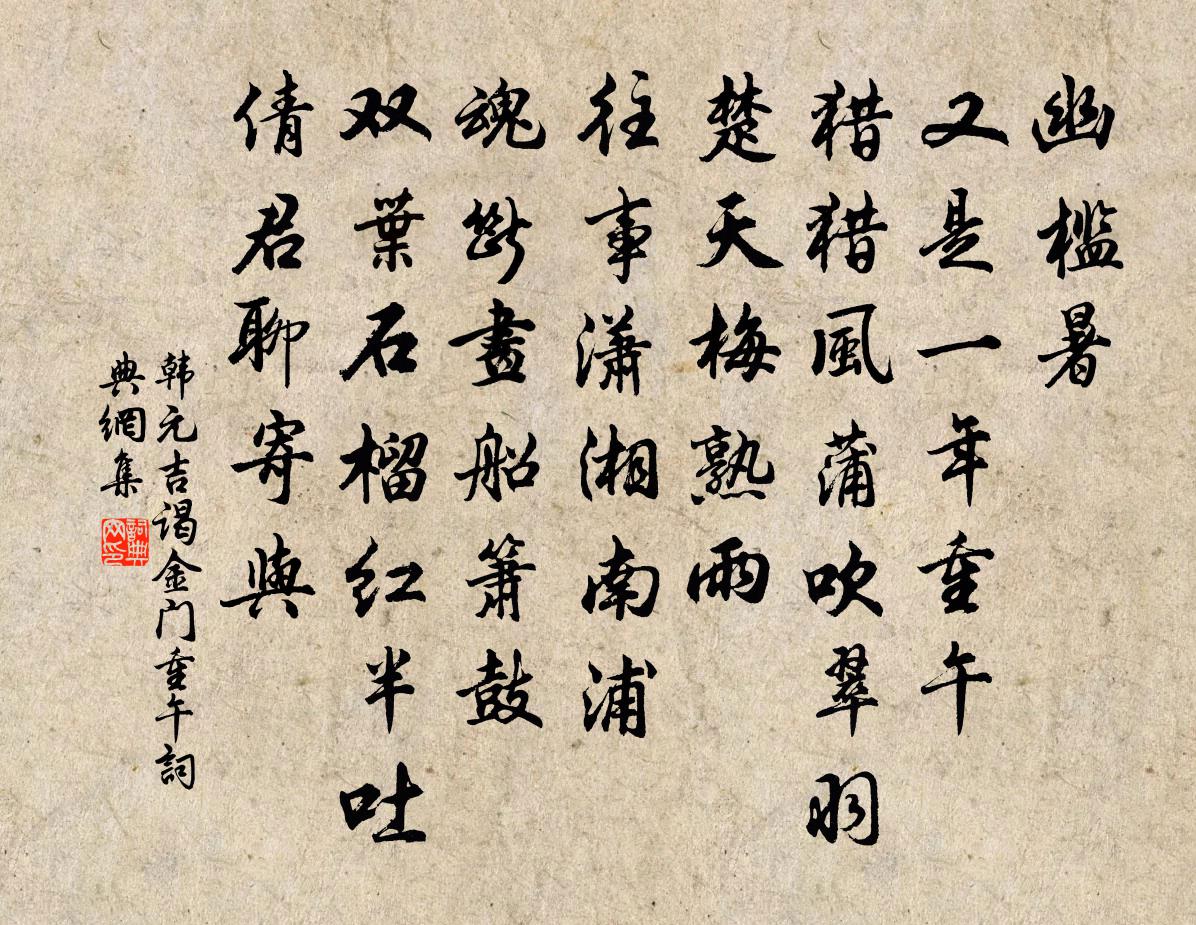 幽槛暑
又是一年重午
猎猎風蒲吹翠羽
楚天梅熟雨
往事瀟湘南浦
魂断畫船簫鼓
双葉石榴红半吐
倩君聊寄與
韩元吉谒金门重午詞
典網集
詞典網印